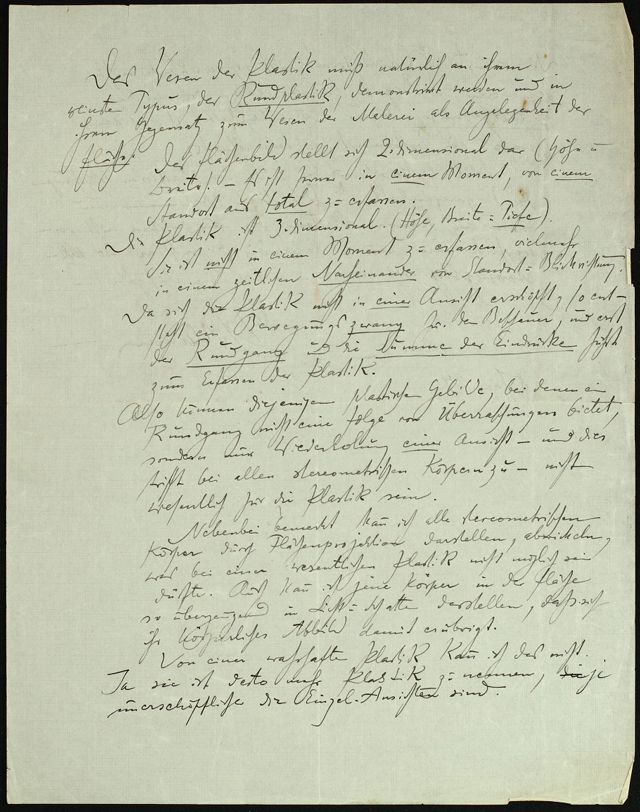 Das Wesen der Plastik muß natürlich an ihrem
reinsten Typus, der Rundplastik, demonstriert werden und in
ihrem Gegensatz zum Wesen der Malerei als Angelegenheit der
Fläche. Das Flächenbild stellt sich 2-dimensional dar (Höhe u
Breite). – Ist immer in einem Moment, von einem
Standort aus total zu erfassen.
Die Plastik ist 3-dimensional. (Höhe, Breite u Tiefe).
Sie ist nicht in einem Moment zu erfassen, vielmehr
in einem zeitlichen Nacheinander von Standort u Blickrichtung.
Da sich die Plastik nicht in einer Ansicht erschöpft, so ent-
steht ein Bewegungszwang für den Beschauer, und erst
der Rundgang u die Summe der Eindrücke führt
zum Erfassen der Plastik.
Also können diejenigen plastischen Gebilde, bei denen ein
Rundgang nicht eine Folge von Überraschungen bietet,
sondern nur Wiederholung einer Ansicht – und dies
trifft bei allen stereometrischen Körpern zu – nicht
wesentlich für die Plastik sein.
Nebenbei bemerkt kann ich alle stereometrischen
Körper durch Flächenprojektion darstellen, abwickeln,
was bei einer wesentlichen Plastik nicht möglich sein
dürfte. Auch kann ich jene Körper in der Fläche
so überzeugend in Licht u Schatten darstellen, daß sich
ihr körperliches Abbild damit erübrigt.
Von einer wahrhaften Plastik kann ich das nicht.
Ja sie ist desto mehr Plastik zu nennen, je
unerschöpflicher die Einzel-Ansichten sind.